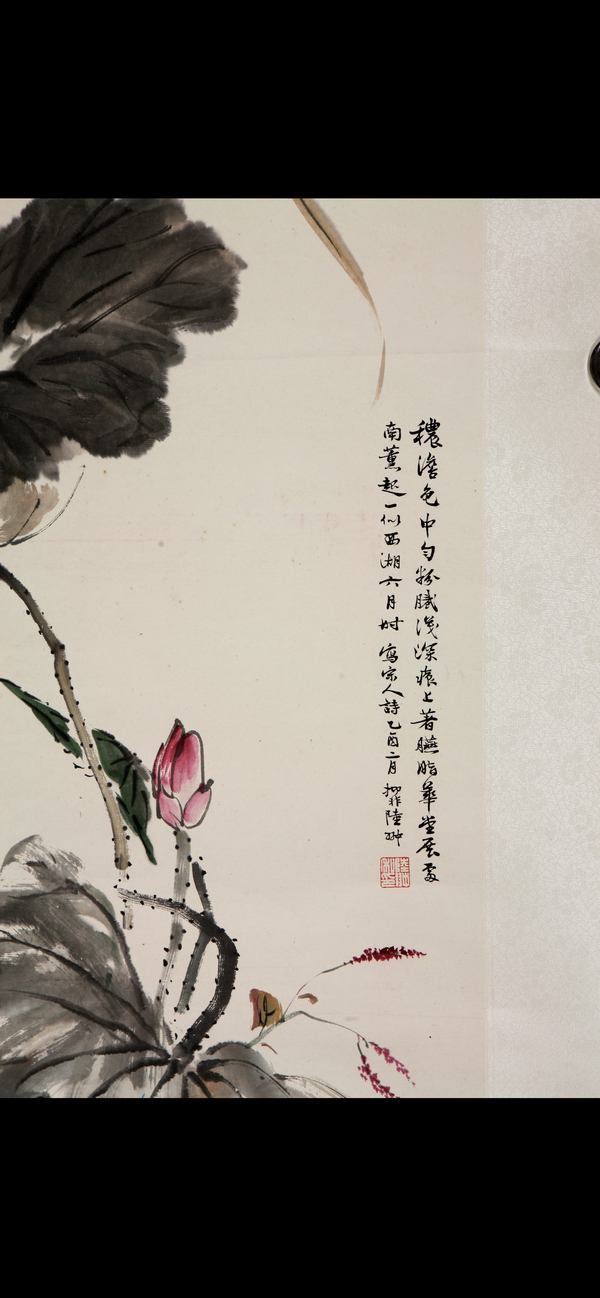 穠澹色中勻粉膩淺深痕上著臙脂華堂展處
南薰起一似西湖六月时 寫宗人詩乙酉二月 抑非陸翀